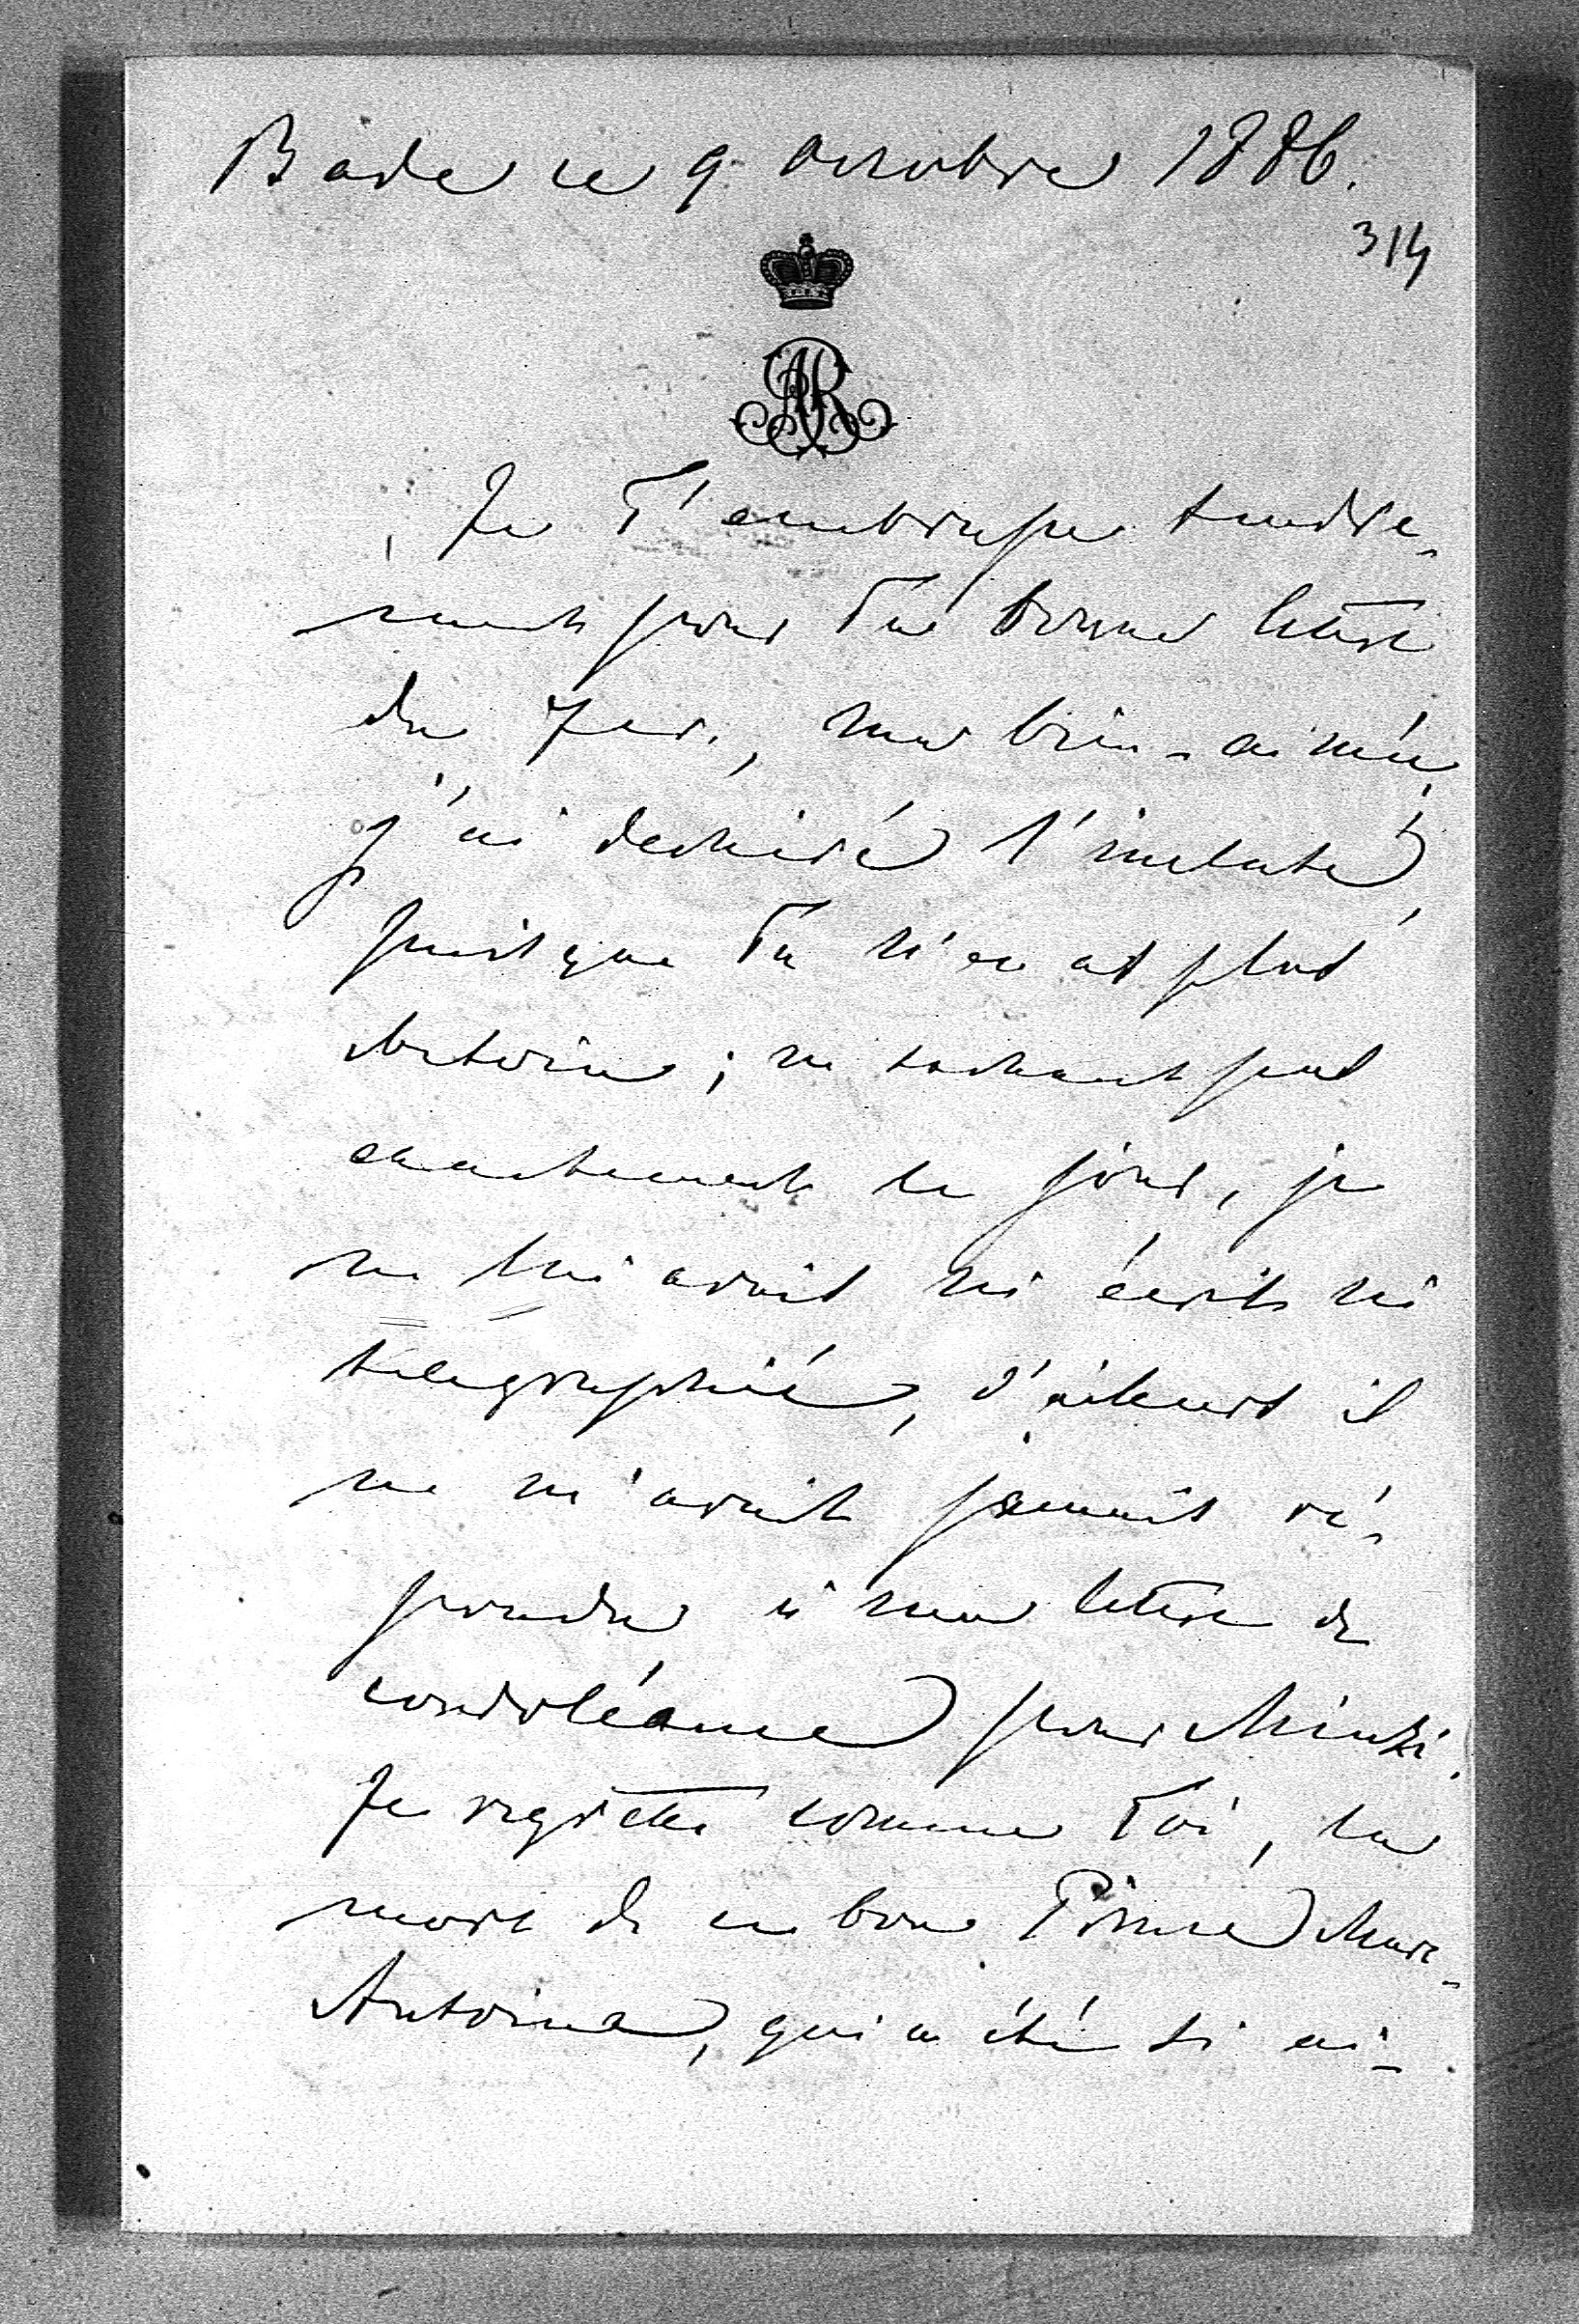 Bade ce 9 octobre 1886.
314
AR
Je T'embrasse tendre-
ment pour Ta bonne lettre
du 7er, ma bien-aimée,
j'ai dechiré l'incluse,
puisque Tu n'en as plus
besoin; ne sachant pas
exactement le jour, je
ne lui avais ni écrit ni
telegraphié, d'ailleurs il
ne m'avait jamais ré-
pondu à ma lettre de
condoléance pour
Je regrette comme Toi, la
mort de ce bon Prince
Antoine, qui a été si ai-